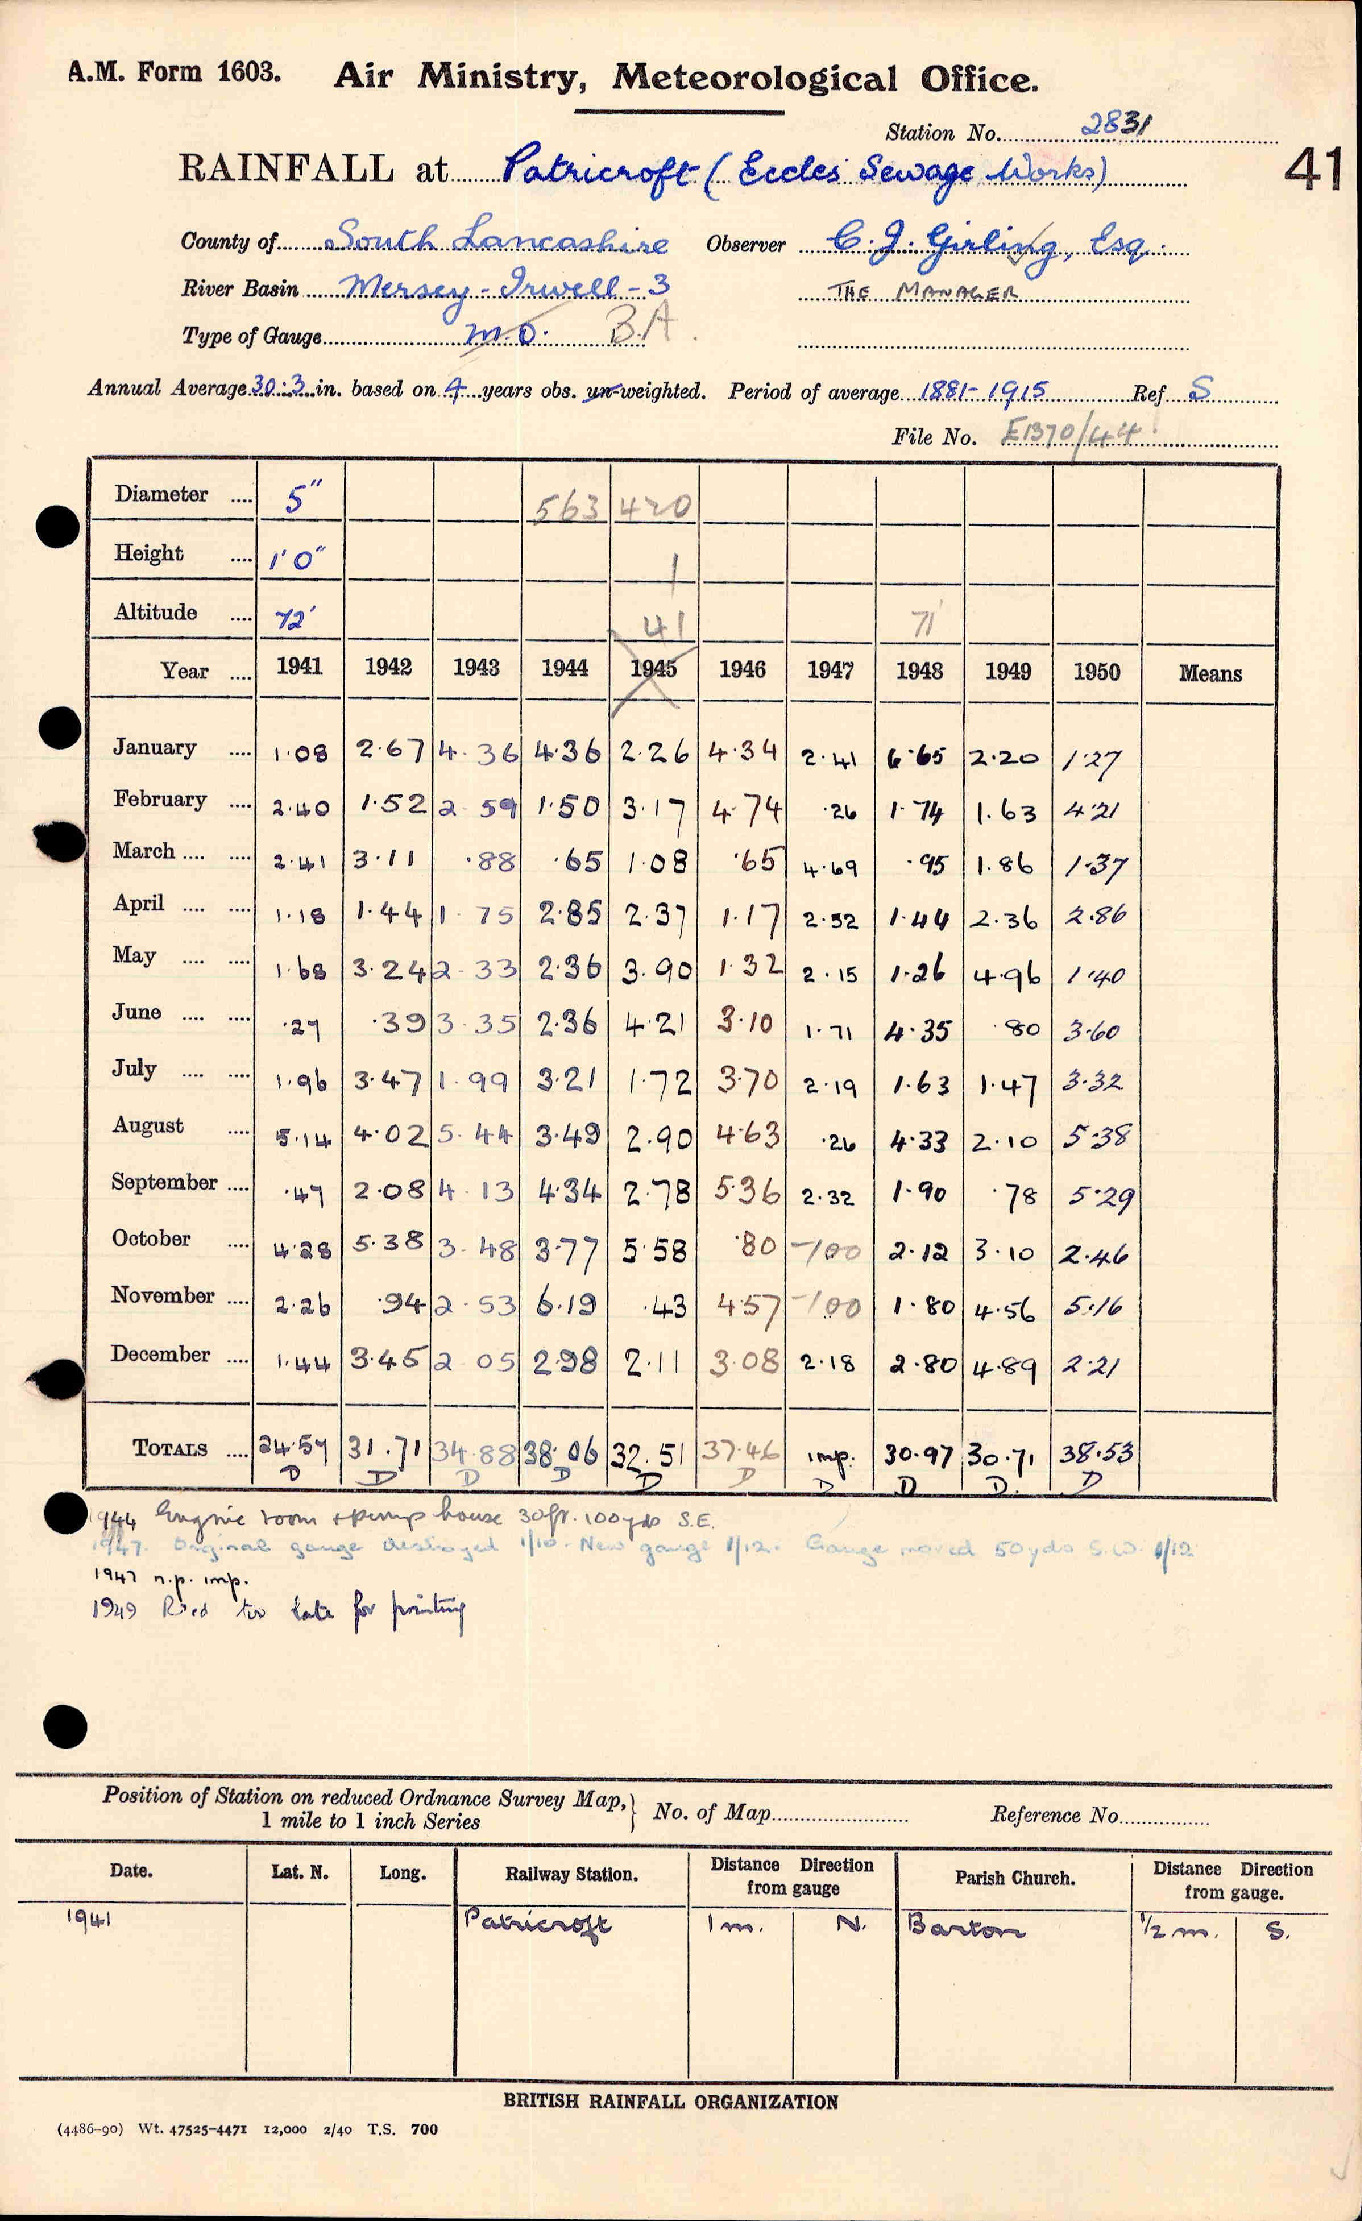 A.M. Form 1603. Air Ministry, Meteorological Office.
Station No. 2831
41
RAINFALL at Patricroft (Eccles Sewage Works)
County of South Lancashire Observer C. J. Girling, Esq.
River Basin Mersey - Irwell - 3 THE MANAGER
Type of Gauge M.O. B.A.
Annual Average 30.3 in. based on 4 years obs. un-weighted. Period of average 1881-1915 Ref S
File No. E1370/44
Diameter .... 5" 563 420
Height .... 1'0" 1
Altitude .... 72' 41 71'
Year .... 1941 1942 1943 1944 1945 1946 1947 1948 1949 1950 Means
January .... 1.08 2.67 4.36 4.36 2.26 4.34 2.41 6.65 2.20 1.27
February .... 2.40 1.52 2 59 1.50 3.17 4.74 .26 1.74 1.63 4.21
March .... .... 2.41 3.11 .88 .65 1.08 .65 4.69 .95 1.86 1.37
April .... .... 1.18 1.44 1.75 2.85 2.37 1.17 2.52 1.44 2.36 2.86
May .... .... 1.68 3.24 2.33 2.36 3.90 1.32 2.15 1.26 4.96 1.40
June .... .... .27 .39 3.35 2.36 4.21 3.10 1.71 4.35 .80 3.60
July .... .... 1.96 3.47 1.99 3.21 1.72 3.70 2.19 1.63 1.47 3.32
August .... 5.14 4.02 5.44 3.49 2.90 4.63 .26 4.33 2.10 5.38
September .... .47 2.08 4.13 4.34 2.78 5.36 2.32 1.90 .78 5.29
October .... 4.28 5.38 3.48 3.77 5.58 .80 -100 2.12 3.10 2.46
November .... 2.26 .94 2.53 6.19 .43 4.57 -100 1.80 4.56 5.16
December .... 1.44 3.45 2 05 2.98 2.11 3.08 2.18 2.80 4.89 2.21
TOTALS .... 24.57 31.71 34.88 38.06 32.51 37.46 imp. 30.97 30.71 38.53
D D D D D D D D D. D
1944 Engine room & pump house 30ft. 100yds S.E.
1947. Original gauge destroyed 1/10. New gauge 1/12. Gauge moved 50yds S.W. 1/12
1947 n.p. imp.
1949 Rec'd too late for printing
Position of Station on reduced Ordnance Survey Map, 1 mile to 1 inch Series } No. of Map Reference No.
Date. Lat. N. Long. Railway Station. Distance Direction from gauge Parish Church. Distance Direction from gauge.
1941 Patricroft 1 m. N. Barton 1/2 m. S.
BRITISH RAINFALL ORGANIZATION
(4486-90) Wt. 47525-4471 12,000 2/40 T.S. 700